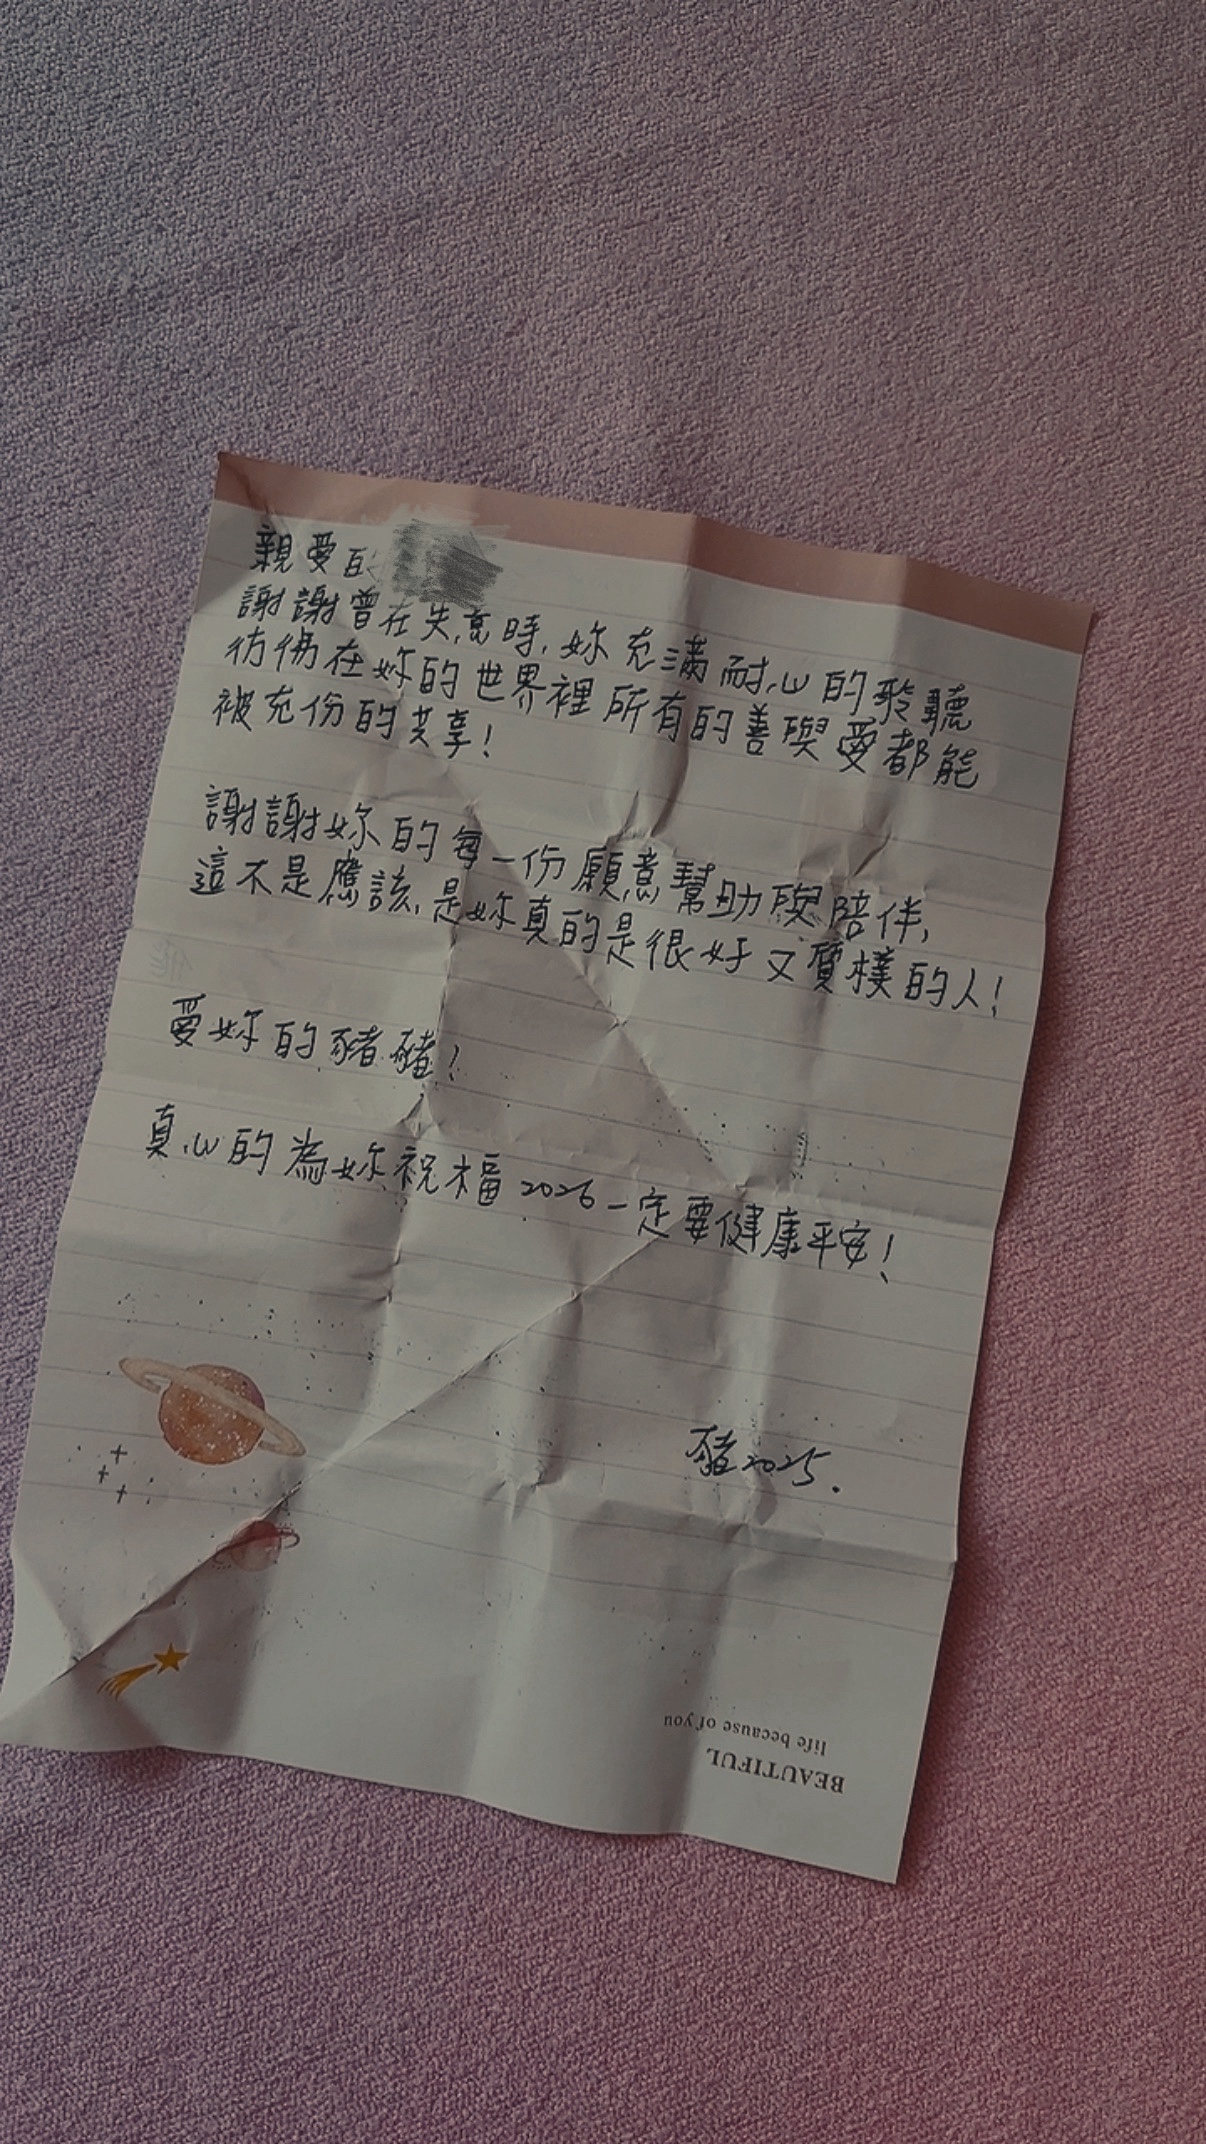 親愛的
謝謝曾在失意時,妳充滿耐心的聆聽
彷彿在妳的世界裡所有的善與愛都能
被充份的共享!
謝謝妳的每一份願意幫助與陪伴,
這不是應該,是妳真的是很好又質樸的人!
愛妳的豬豬!
真心的為妳祝福2026一定要健康平安!
豬2025.
BEAUTIFUL
life because of you